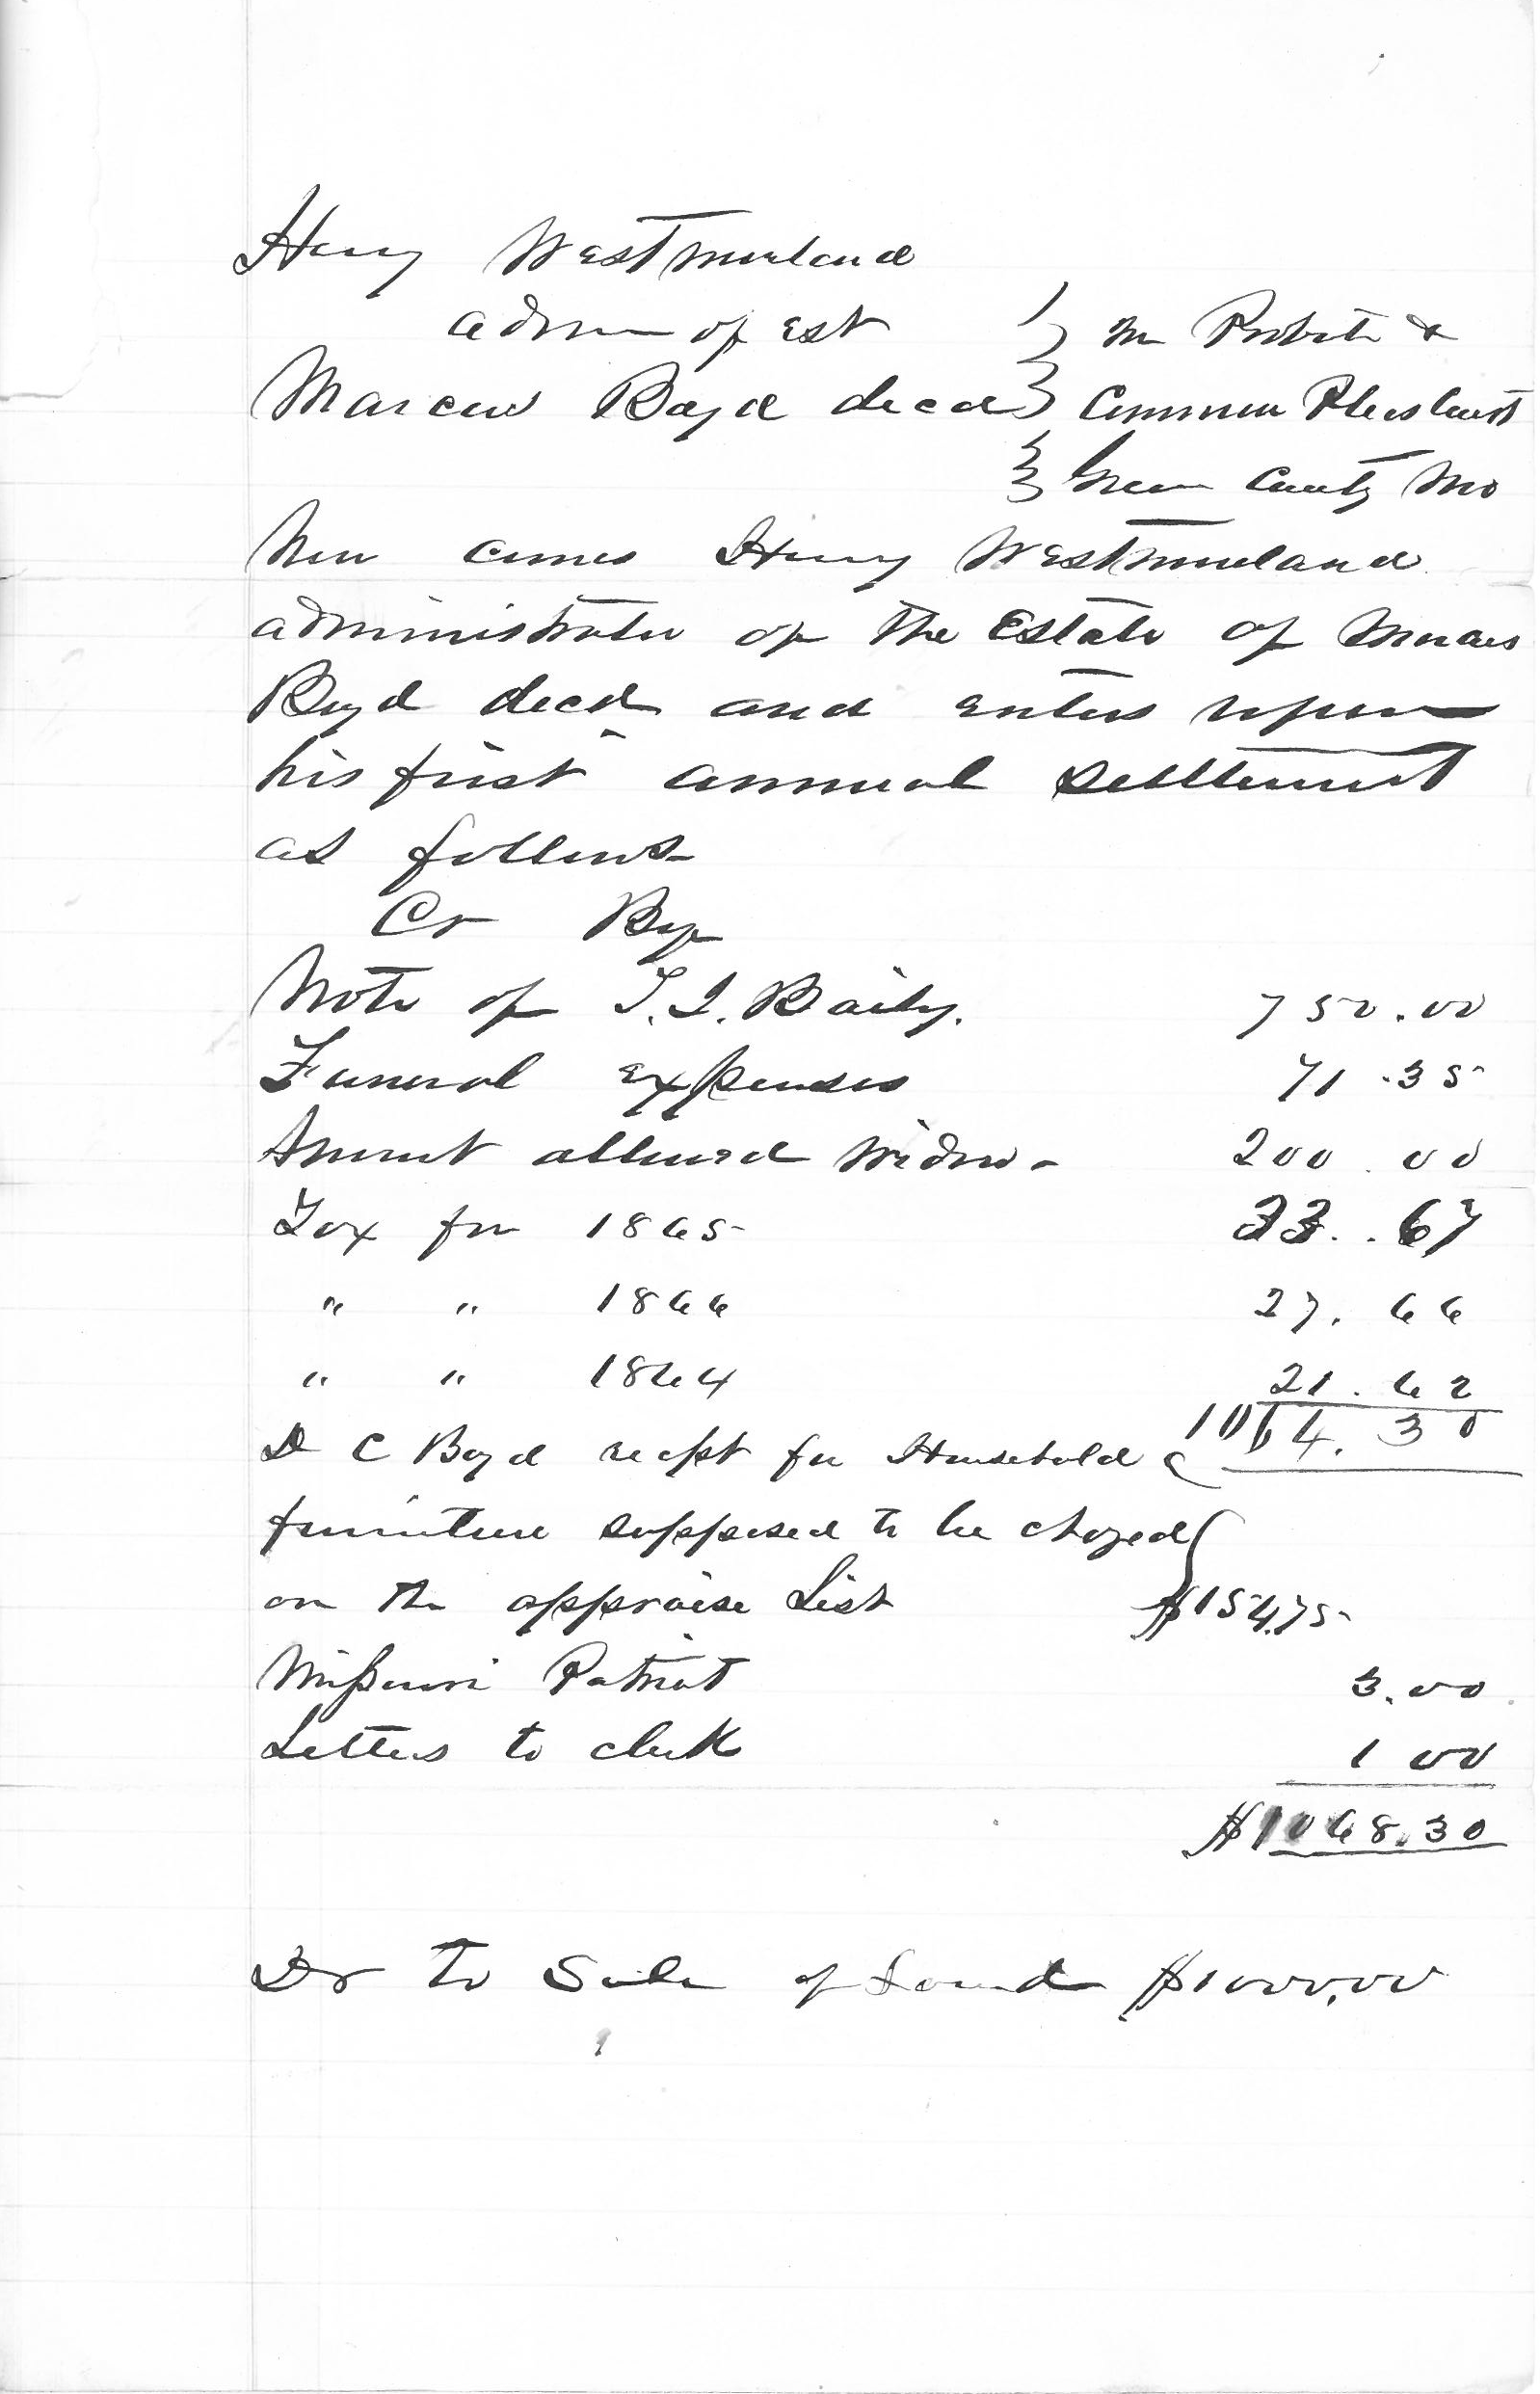 Henry Westmoreland
admr of est } In Probate &
Marcus Boyd decd } Common Pleas Court
} Green County Mo
Now comes Henry Westmoreland
administrator of the Estate of Marcus
Boyd decd and enters upon
his first annual settlement
as follows
Cr By
Note of T. J. Baily. 750.00
Funeral expenses 71.35
Amount allowed widow - 200.00
Tax for 1865 .67
" " 1866 27.66
" " 1864 21.62
1064.30
D C Boyd recpt for Household
furniture supposed to be charged
on the appraise List $154.75
Missouri Patriot 3.00
Letters to clerk 1 00
$1068.30
Dr To Sale of Land $1000.00